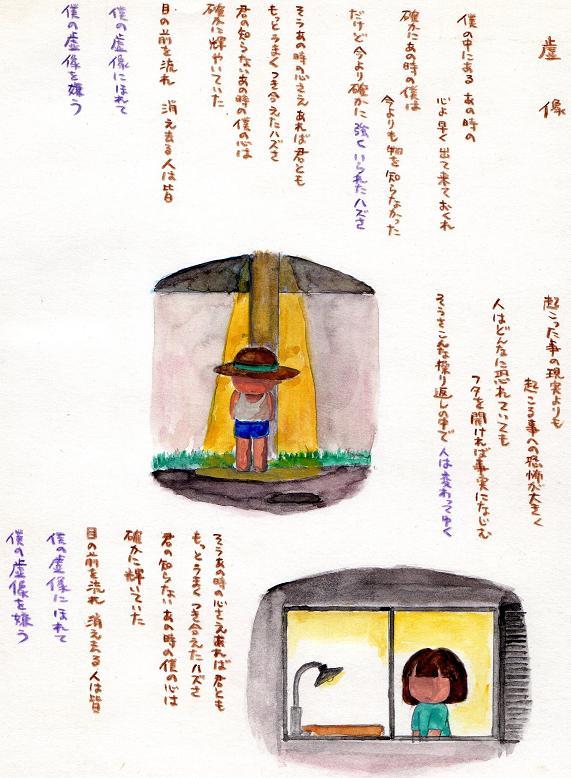 虚像
僕の中にある あの時の
心よ早く出て来ておくれ
確かにあの時の僕は
今よりも物を知らなかった
だけど今より確かに強くいられたハズさ
そうあの時の心さえあれば君とも
もっとうまくつき合えたハズさ
君の知らないあの時の僕の心は
確かに輝やいていた
目の前を流れ 消え去る人は皆
僕の虚像にほれて
僕の虚像を嫌う
起こった事の現実よりも
起こる事への恐怖が大きく
人はどんなに恐れていても
フタを開ければ事実になじむ
そうさこんな繰り返しの中で人は変わってゆく
そうあの時の心さえあれば君とも
もっとうまくつき合えたハズさ
君の知らないあの時の僕の心は
確かに輝いていた
目の前を流れ 消え去る人は皆
僕の虚像にほれて
僕の虚像を嫌う